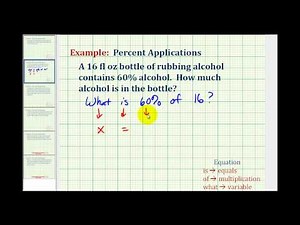 Example: Percent Applications
A 16 fl oz bottle of rubbing alcohol
contains 60% alcohol. How much
alcohol is in the bottle?
What is 60% of 16?
x =
Equation
is → equals
of → multiplication
what → variable